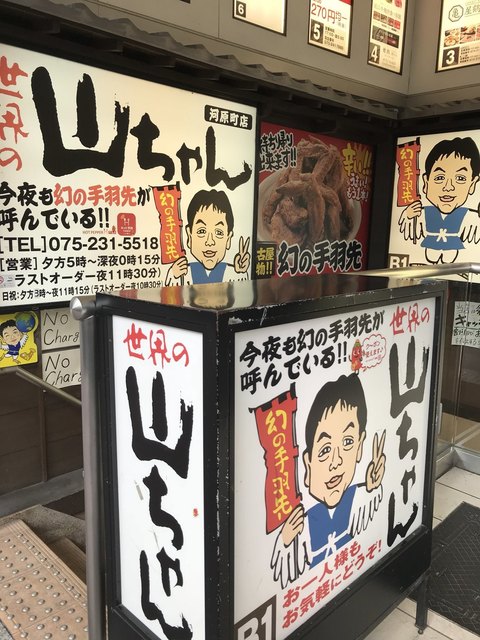 6
5
270円均一
4
3
世界の
山ちゃん
河原町店
今夜も幻の手羽先が
呼んでいる!!
[TEL]075-231-5518
[営業]夕方5時～深夜0時15分
ラストオーダー夜11時30分)
日祝:夕方5時～夜11時15分(ラストオーダー夜10時30分)
幻の手羽先
辛い!!
名古屋名物!!
幻の手羽先
幻の手羽先
B1
No
Charg
No
Charg
世界の
山ちゃん
今夜も幻の手羽先が
呼んでいる!!
世界の
山ちゃん
幻の手羽先
お一人様も
お気軽にどうぞ!
B1